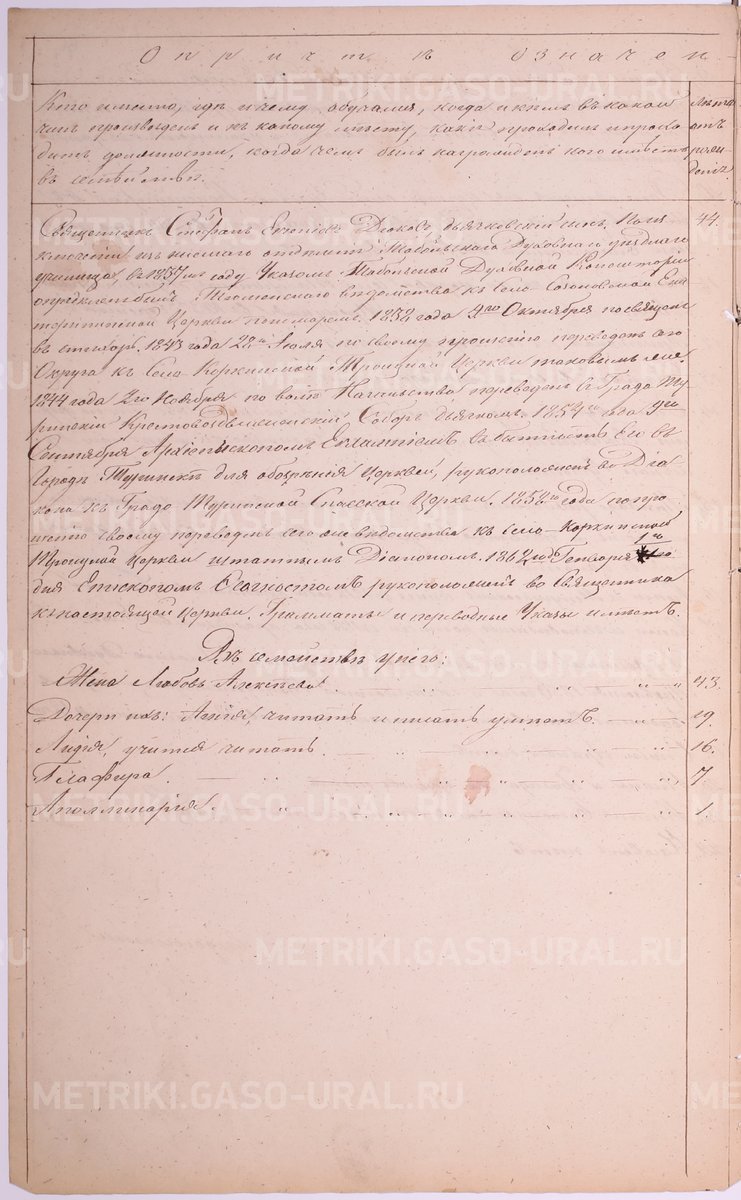 О причтѣ означен
Кто именно, гдѣ и чему обучался, когда и кѣмъ въ какой
чинъ произведенъ и къ какому мѣсту, какія проходилъ и прохо
дитъ должности, когда чѣмъ былъ награжденъ и кого имѣетъ
въ семействѣ.
Лѣта
отъ
рожде
нія.
Священникъ Стефанъ Діаковъ, дьячковскій сынъ. По ис
ключеніи изъ низшаго отдѣленія Тобольскаго Духовнаго уѣзднаго
училища, въ 1837мъ году Указомъ Тобольской Духовной Консисторіи
опредѣленъ былъ Тюменскаго вѣдомства къ Село Созоновской Ека
терининской Церкви пономаремъ. 1838 года 4го Октября посвященъ
въ стихарь. 1843 года 28го Іюля по своему прошенію переведенъ сего
Округа къ Село Коркинской Троицкой Церкви таковымъ же.
1844 года 2го Ноября по волѣ Начальства переведенъ въ Градо Ту
ринскій Крестовоздвиженскій Соборъ дьячкомъ. года 9го
Сентября Архіепископомъ Евлампіемъ въ бытность Его въ
Городѣ Туринскѣ для обозрѣнія Церквей, рукоположенъ во Діа
кона къ Градо Туринской Спасской Церкви. 1858го года по про
шенію своему переведенъ сего же вѣдомства къ Село Коркинской
Троицкой Церкви штатнымъ Діакономъ. 1862 года Генваря 1го
дня Епископомъ Ѳеогностомъ рукоположенъ во Священника
къ настоящей Церкви. Граммату и переводные Указы имѣетъ.
44.
Въ семействѣ у него:
Жена Любовь Алексѣева 43.
Дочери ихъ: Агнія, читать и писать умѣетъ. 19.
Лидія, учится читать 16.
Глафира. 7
Аполлинарія. 1.
METRIKI.GASO-URAL.RU